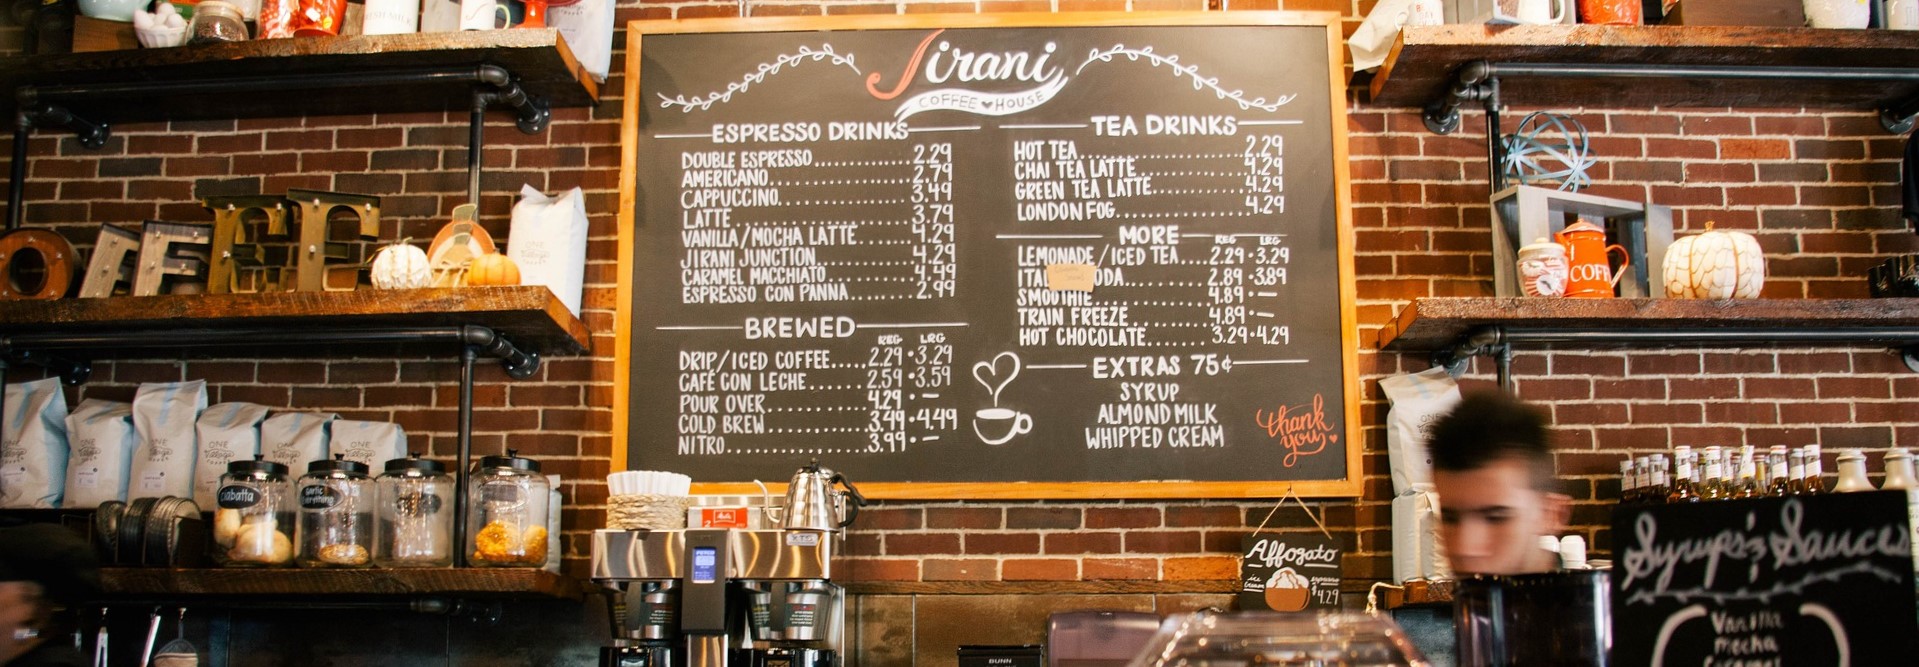 Jirani
COFFEE HOUSE
ESPRESSO DRINKS
DOUBLE ESPRESSO..............2.29
AMERICANO....................2.79
CAPPUCCINO...................3.49
LATTE........................3.79
VANILLA/MOCHA LATTE.......4.29
JIRANI JUNCTION..............4.29
CARAMEL MACCHIATO............4.49
ESPRESSO CON PANNA.......2.99
BREWED
REG LRG
DRIP/ICED COFFEE.....2.29•3.29
CAFÉ CON LECHE......2.59•3.59
POUR OVER............4.29•—
COLD BREW............3.49•4.49
NITRO................3.99•—
TEA DRINKS
HOT TEA......................2.29
CHAI TEA LATTE...............4.29
GREEN TEA LATTE..............4.29
LONDON FOG...................4.29
MORE
REG LRG
LEMONADE/ICED TEA....2.29•3.29
ITAL ODA.............2.89•3.89
SMOOTHIE.............4.89•—
TRAIN FREEZE.........4.89•—
HOT CHOCOLATE........3.29•4.29
EXTRAS 75¢
SYRUP
ALMOND MILK
WHIPPED CREAM
thank
you
OFFEE
ONE
Village
COFF
ciabatta
Garlic
Everything
Affogato
ice
cream
espresso
$4.29
Syrups & Sauces
Vanilla
mocha
BUNN